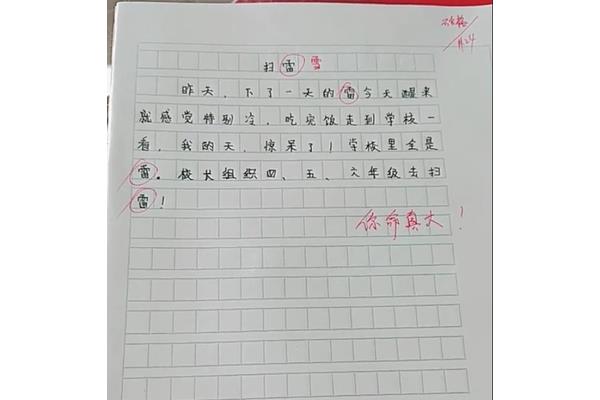 不合格
11.24
扫雷 雪
昨天,下了一天的雷今天醒来
就感觉特别冷,吃完饭走到学校一
看,我的天,惊呆了!学校里全是
雷。校长组织四、五、六年级去扫
雷!
你命真大!